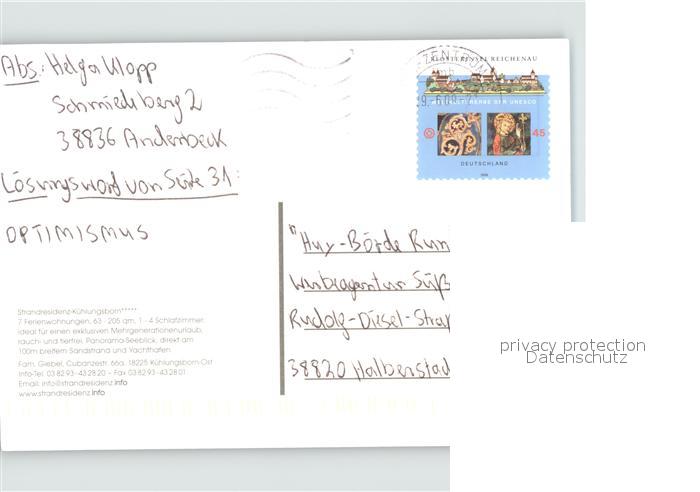 Abs.: Helga Klopp
Schmiedeberg 2
38836 Anderbeck
Lösungswort von Seite 31:
OPTIMISMUS
KLOSTERINSEL REICHENAU
WELTKULTURERBE DER UNESCO
45
DEUTSCHLAND
"Huy-Börde Kun
Werbeagentur Süß
Rudolf-Diesel-Straß
38820 Halberstad
Strandresidenz-Kühlungsborn*****
7 Ferienwohnungen, 63 - 205 qm, 1 - 4 Schlafzimmer,
ideal für einen exklusiven Mehrgenerationenurlaub,
rauch- und tierfrei, Panorama-Seeblick, direkt am
100m breitem Sandstrand und Yachthafen
Fam. Giebel, Cubanzestr. 66a, 18225 Kühlungsborn-Ost
Info-Tel. 0 38 2 93 - 43 28 20 - Fax 0 38 2 93 - 43 28 01
Email: info@strandresidenz.info
www.strandresidenz.info
privacy protection
Datenschutz